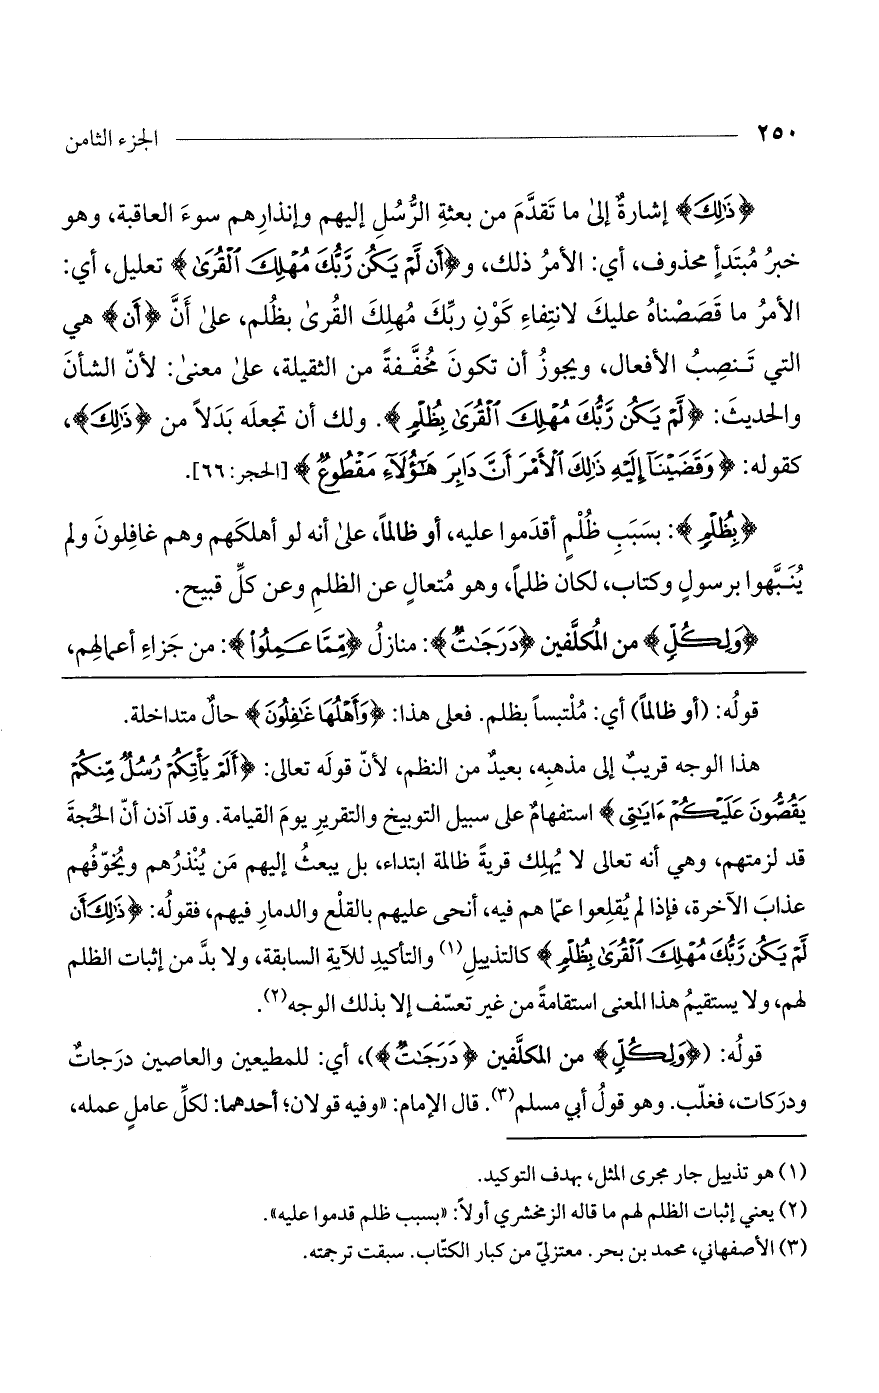 ٢٥٠ الجزء الثامن
﴿ذَٰلِكَ﴾ إشارةٌ إلىٰ ما تَقدَّمَ من بعثةِ الرُّسُلِ إليهم وإنذارِهم سوءَ العاقبة، وهو
خبرُ مُبتَدأٍ محذوف، أي: الأمرُ ذلك، و﴿أَن لَّمْ يَكُن رَّبُّكَ مُهْلِكَ ٱلْقُرَىٰ﴾ تعليل، أي:
الأمرُ ما قَصَصْناهُ عليكَ لانتِفاءِ كَوْنِ ربِّكَ مُهلِكَ القُرىٰ بظُلم، علىٰ أنَّ ﴿أَن﴾ هي
التي تَـنصِبُ الأفعال، ويجوزُ أن تكونَ مُخفَّـفةً من الثقيلة، علىٰ معنىٰ: لأنّ الشأنَ
والحديثَ: ﴿لَمْ يَكُن رَّبُّكَ مُهْلِكَ ٱلْقُرَىٰ بِظُلْمٍ﴾. ولك أن تجعلَه بَدَلاً من ﴿ذَٰلِكَ﴾،
كقوله: ﴿وَقَضَيْنَآ إِلَيْهِ ذَٰلِكَ ٱلْأَمْرَ أَنَّ دَابِرَ هَـٰٓؤُلَآءِ مَقْطُوعٌ﴾ [الحجر: ٦٦].
﴿بِظُلْمٍ﴾: بسَبَبِ ظُلْمٍ أقدَموا عليه، أو ظالماً، علىٰ أنه لو أهلكَهم وهم غافِلونَ ولم
يُنَـبَّهوا برسولٍ وكتاب، لكان ظلماً، وهو مُتعالٍ عن الظلمِ وعن كلِّ قبيح.
﴿وَلِكُلٍّ﴾ من المُكلَّفين ﴿دَرَجَـٰتٌ﴾: منازلُ ﴿مِّمَّا عَمِلُوا۟﴾: من جَزاءِ أعمالِهم،
قولُه: (أو ظالماً) أي: مُلْتبساً بظلم. فعلى هذا: ﴿وَأَهْلُهَا غَـٰفِلُونَ﴾ حالٌ متداخلة.
هذا الوجه قريبٌ إلى مذهبِه، بعيدٌ من النظم، لأنّ قولَه تعالى: ﴿أَلَمْ يَأْتِكُمْ رُسُلٌ مِّنكُمْ
يَقُصُّونَ عَلَيْكُمْ ءَايَـٰتِى﴾ استفهامٌ على سبيل التوبيخ والتقريرِ يومَ القيامة. وقد آذن أنّ الحُجةَ
قد لزمتهم، وهي أنه تعالى لا يُهلِك قريةً ظالمة ابتداء، بل يبعثُ إليهم مَن يُنْذرُهم ويُخوّفُهم
عذابَ الآخرة، فإذا لم يُقلِعوا عمّا هم فيه، أنحى عليهم بالقلْع والدمارِ فيهم، فقولُه: ﴿ذَٰلِكَ أَن
لَّمْ يَكُن رَّبُّكَ مُهْلِكَ ٱلْقُرَىٰ بِظُلْمٍ﴾ كالتذييلِ(١) والتأكيدِ للآيةِ السابقة، ولا بدَّ من إثبات الظلم
لهم، ولا يستقيمُ هذا المعنى استقامةً من غير تعسّف إلا بذلك الوجه(٢).
قولُه: (﴿وَلِكُلٍّ﴾ من المكلَّفين ﴿دَرَجَـٰتٌ﴾)، أي: للمطيعين والعاصين درَجاتٌ
ودرَكات، فغلّب. وهو قولُ أبي مسلم(٣). قال الإمام: «وفيه قولان؛ أحدهما: لكلِّ عاملٍ عمله،
(١) هو تذييل جار مجرى المثل، بهدف التوكيد.
(٢) يعني إثبات الظلم لهم ما قاله الزمخشري أولاً: «بسبب ظلم قدموا عليه».
(٣) الأصفهاني، محمد بن بحر. معتزليّ من كبار الكتّاب. سبقت ترجمته.